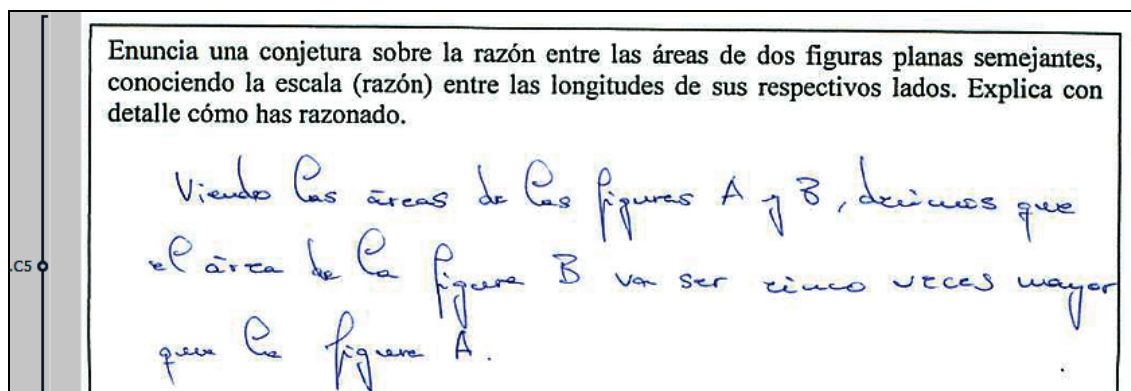 Enuncia una conjetura sobre la razón entre las áreas de dos figuras planas semejantes,
conociendo la escala (razón) entre las longitudes de sus respectivos lados. Explica con
detalle cómo has razonado.
Viendo las áreas de las figuras A y B, decimos que
.C5 el área de la figura B va ser cinco veces mayor
que la figura A.